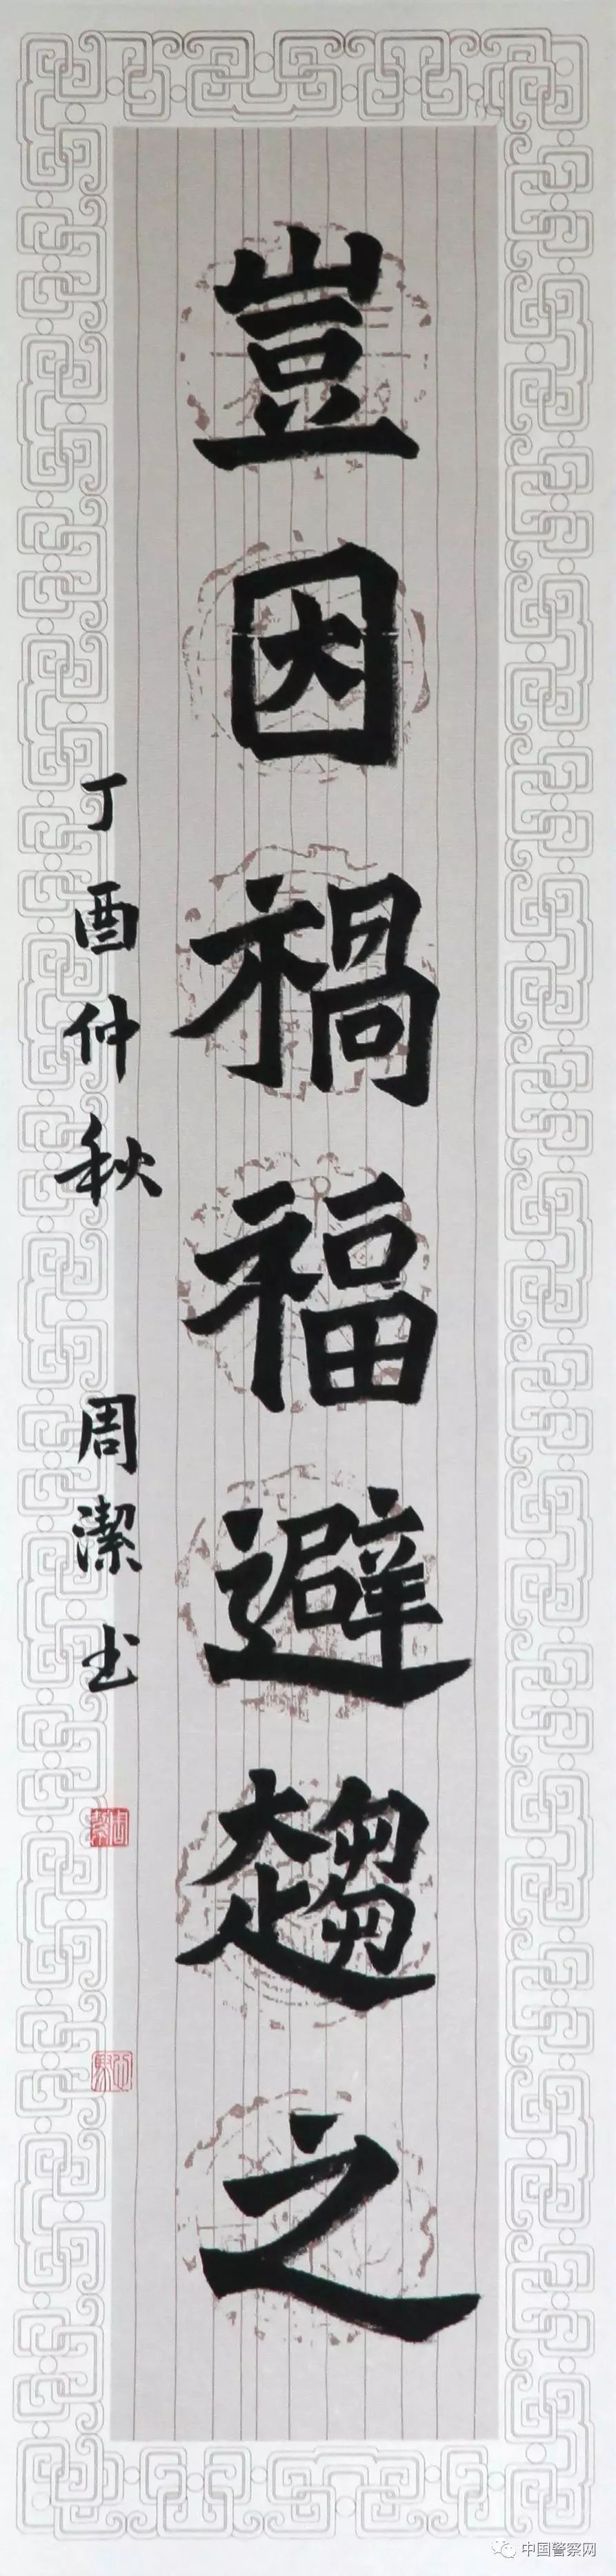 豈因禍福避趨之
丁酉仲秋 周潔书
中国警察网